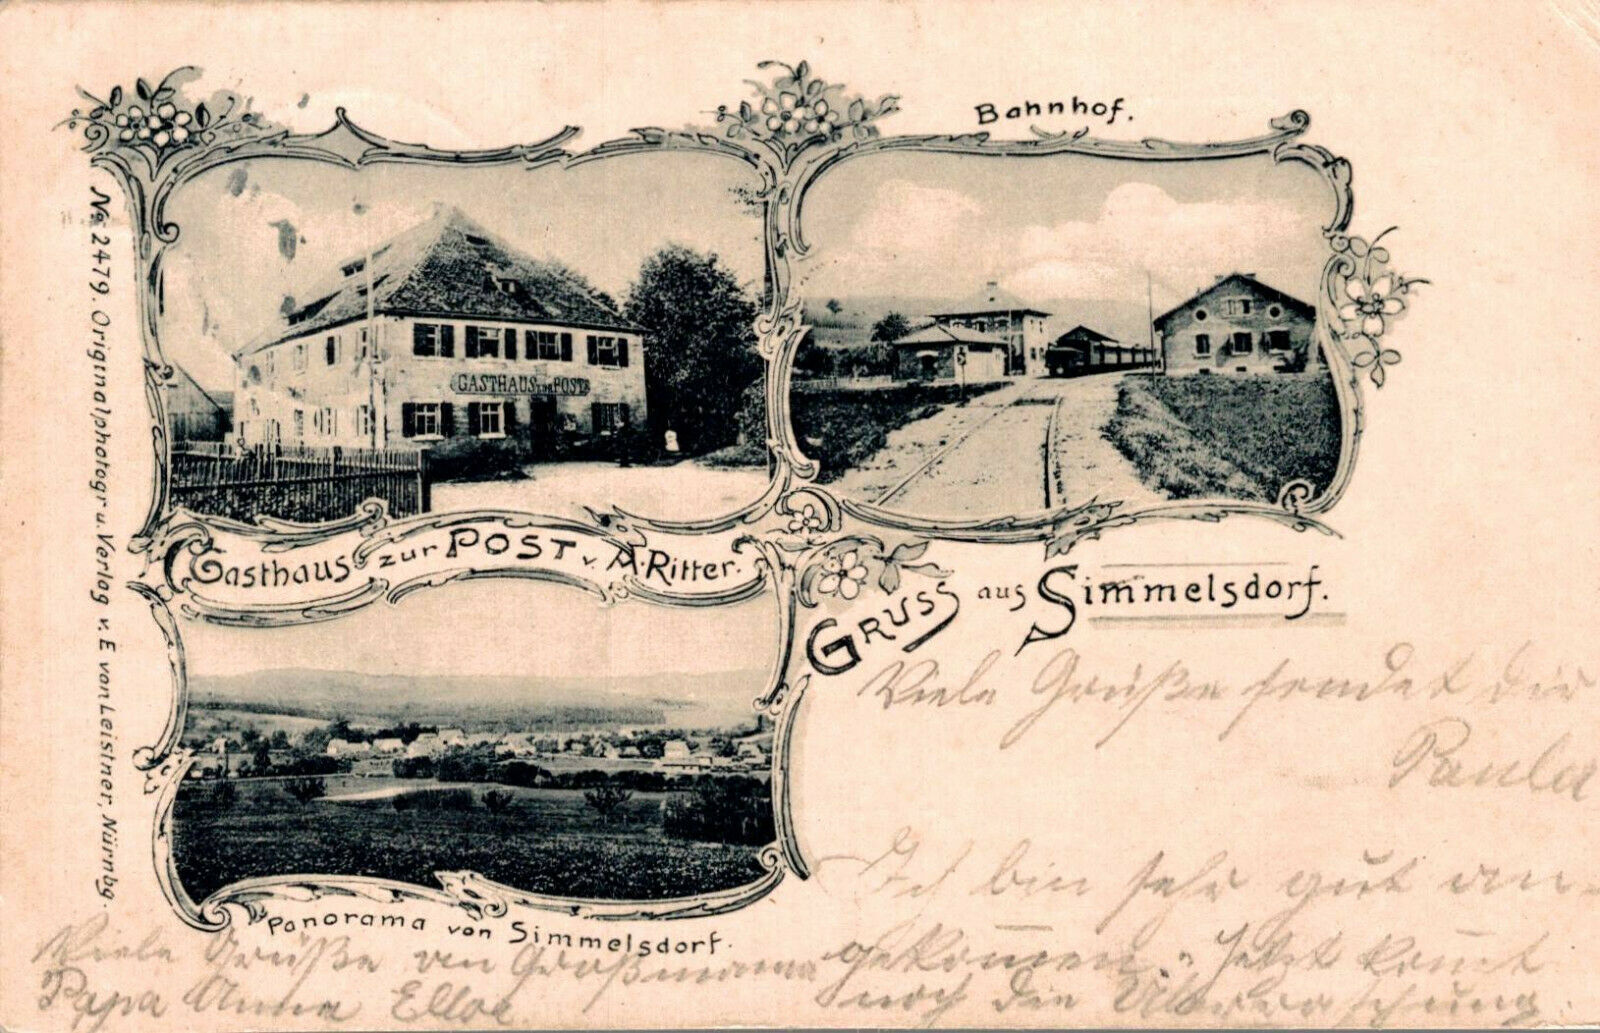 Bahnhof.
GASTHAUS ZUR POST
Gasthaus zur POST v. A. Ritter.
GRUSS aus Simmelsdorf.
Panorama von Simmelsdorf.
No. 2479. Originalphotogr u. Verlag v. E von Leistner, Nürnbg.
Viele Grüße sendet die
Paula
Ich bin sehr gut an-
gekommen. Jetzt kommt
noch die Überraschung.
Viele Grüße an Großmama
Papa Anna